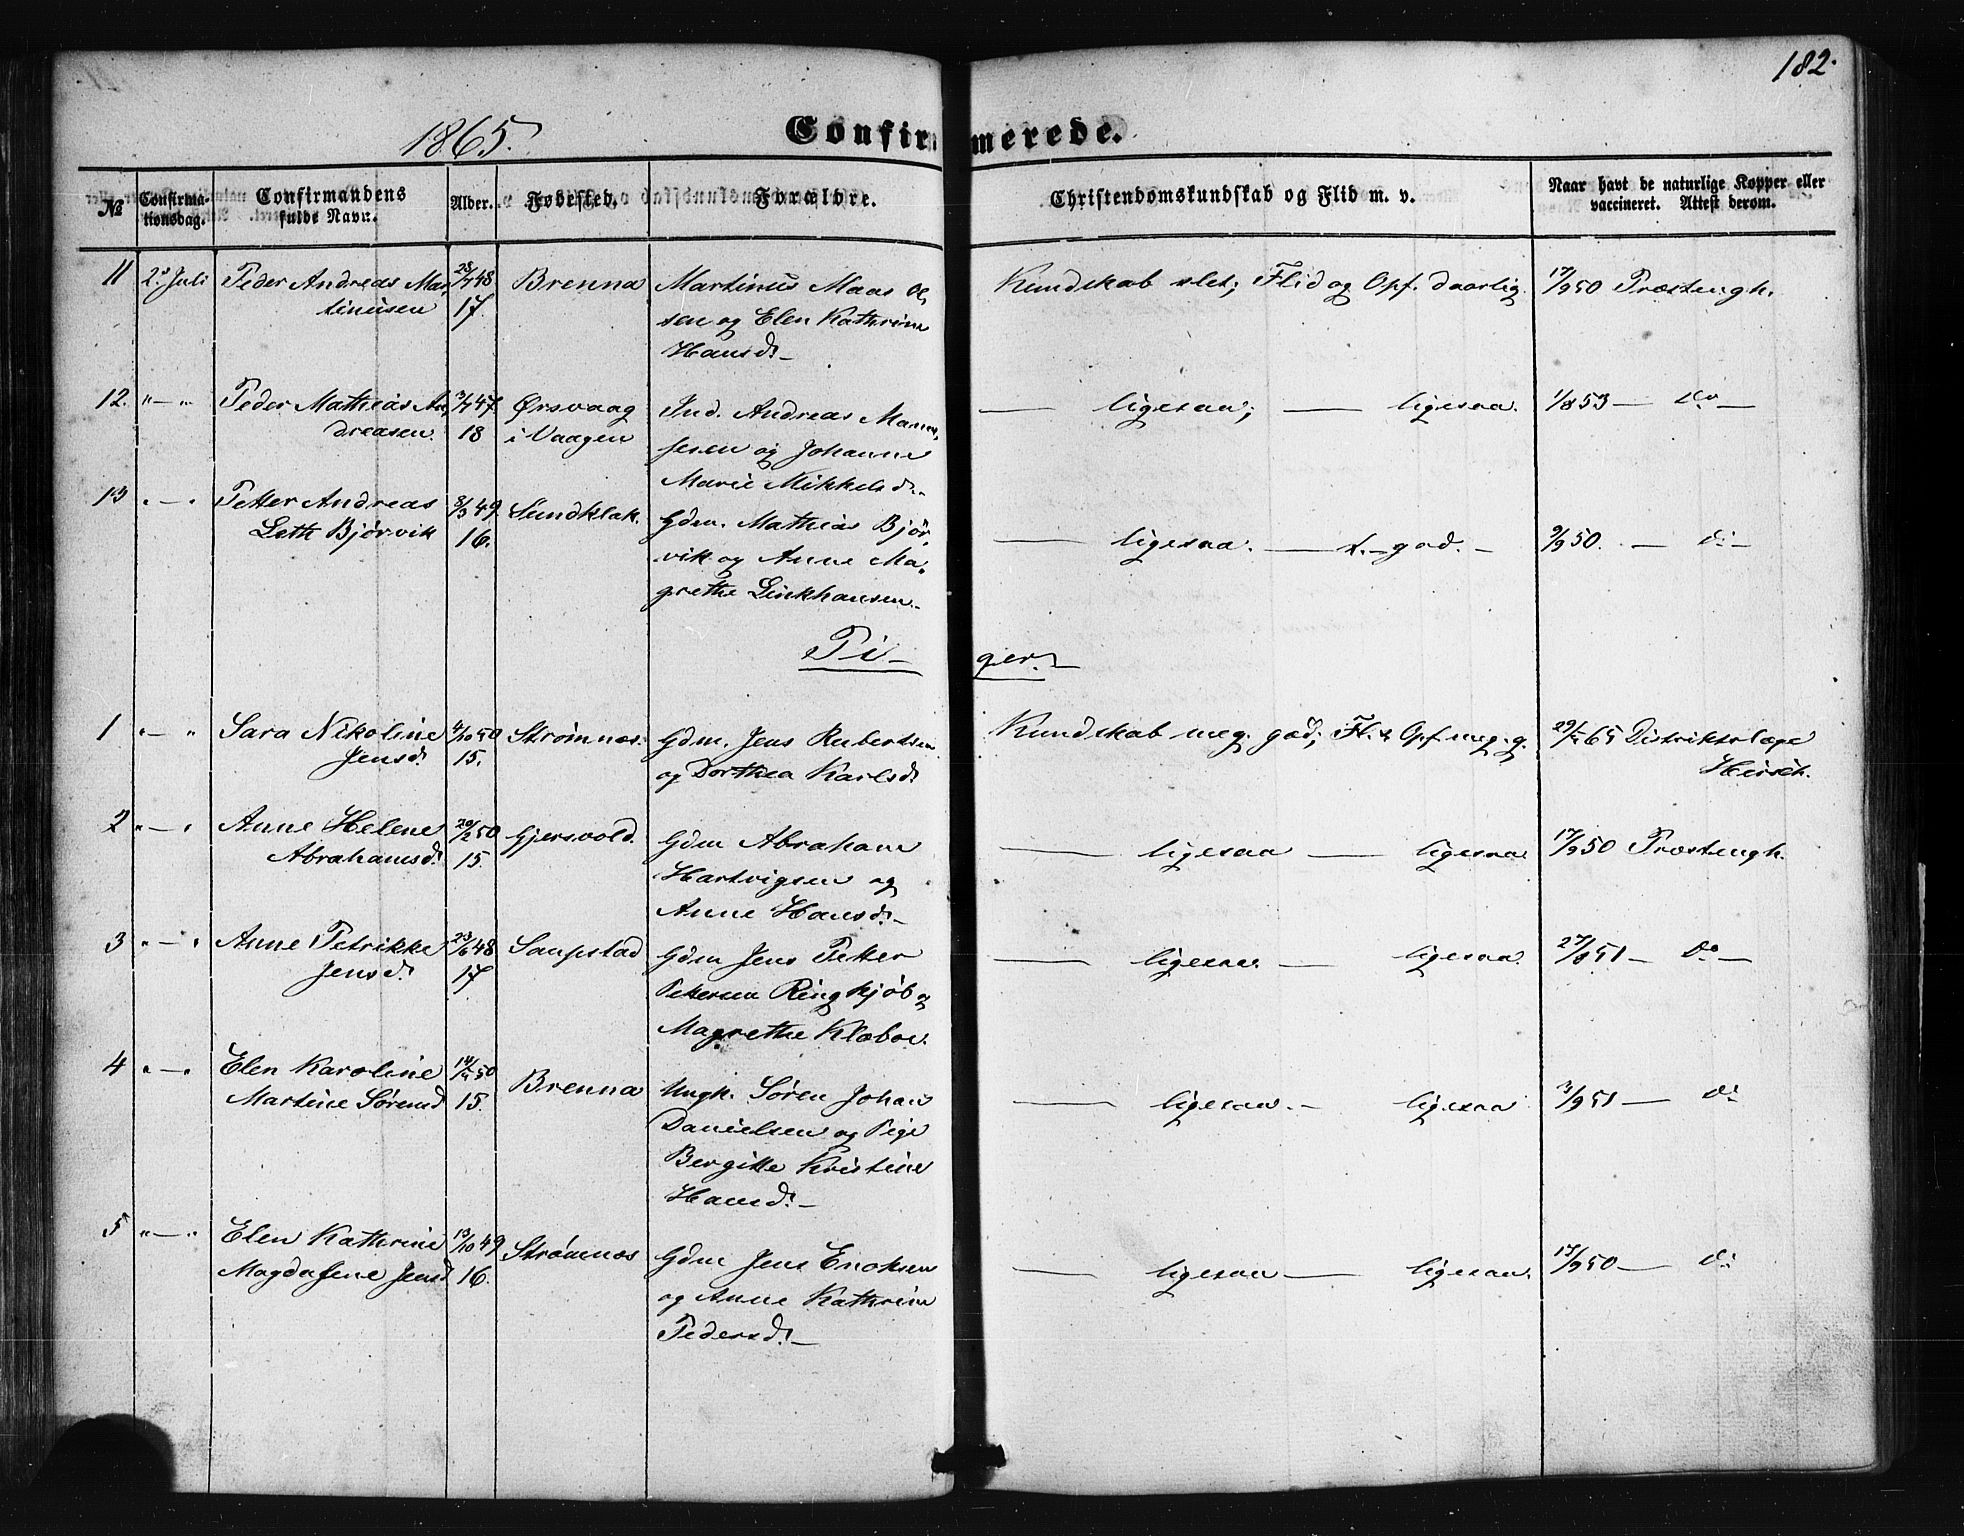 182.
1865.
Confirmerede.
№
Confirmationsdag.
Confirmandens fulde Navn.
Alder.
Fødested.
Forældre.
Christendomskundskab og Flid m. v.
Naar havt de naturlige Kopper eller vaccineret. Attest derom.
11 2. Juli Peder Andreas Mar- 28/7 48 Brenna Martinus Maas Ol- Kundskab slet; Flid og Opf. daarlig. 17/9 50 Præstengh.
tinusen 17. sen og Elen Kathrine
Hansd. —
12. " — " Peder Mathias An- 3/7 47. Ørsvaag Ind. Andreas — ligesaa; — ligesaa. 1/8 53 — Do —
dreasen. 18 i Vaagen og Johanne
Marie Mikkelsd.
13 " — " Petter Andreas 8/3 49. Sundklak. Gdm. Mathias Bjør- — ligesaa. — god. — 9/9 50. — do —
Leth Bjørvik 16. vik og Anne Ma-
grethe Linkhausen.
Pi- ger. —
1 " — " Sara Nikoline 4/10 50 Strømnæs. Gdm. Jens Rubertsen Kundskab meg. god; Fl. & Opf. meg. g. 65 Distriktslæge
Jensd. 15. og Dorthea Karlsd. Hirsch.
2 " — " Anne Helene 20/2 50 Gjersvold. Gdm Abraham — ligesaa — ligesaa 17/9 50 Præstengh.
Abrahamsd. 15. Hartvigsen og
Anne Hansd. —
3 " — " Anne Petrikke 23/6 48 Saupstad Gdm Jens Petter — ligesaa. — ligesaa. 27/8 51 — Do —
Jensd. 17 Petersen Ringkjøb og
Magrethe Klæboe.
4 " — " Elen Karoline 50 Brenna Ungk. Søren Johan — ligesaa. — ligesaa 3/9 51 — Do
Martine Sørensd 15. Danielsen og Pige
Bergitte Kristine
Hansd. —
5 " — " Elen Kathrine 13/10 49 Strømnæs Gdm Jens Enoksen — ligesaa — ligesaa. 17/9 50 — Do
Magdalene Jensd 16. og Anne Kathrine
Pedersd. —